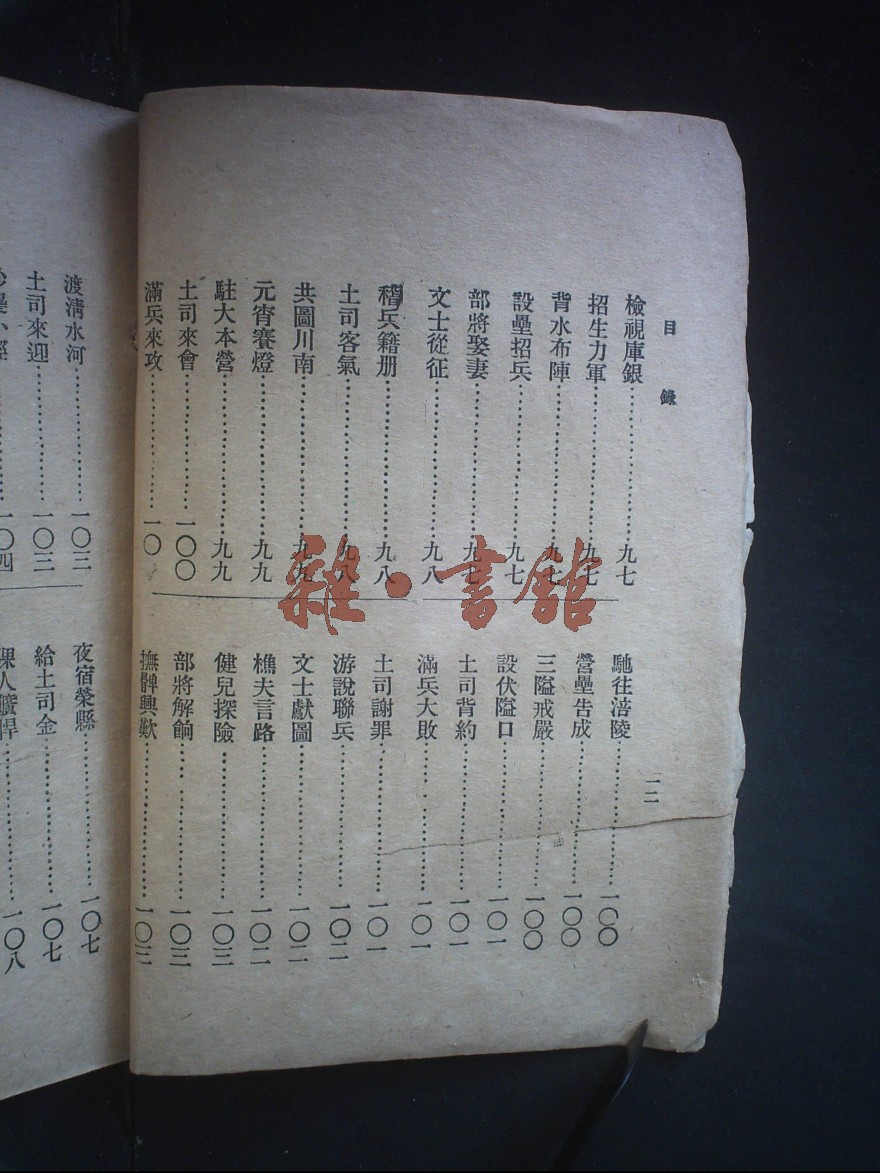 目錄
檢視庫銀⋯⋯⋯⋯九七
招生力軍⋯⋯⋯⋯九七
背水布陣⋯⋯⋯⋯九七
設壘招兵⋯⋯⋯⋯九七
部將娶妻⋯⋯⋯⋯九七
文士從征⋯⋯⋯⋯九八
稽兵籍册⋯⋯⋯⋯九八
土司客氣⋯⋯⋯⋯九八
共圖川南⋯⋯⋯⋯九九
元宵賽燈⋯⋯⋯⋯九九
駐大本營⋯⋯⋯⋯九九
土司來會⋯⋯⋯⋯一〇〇
滿兵來攻⋯⋯⋯⋯一〇
馳往涪陵⋯⋯⋯⋯一〇〇
營壘告成⋯⋯⋯⋯一〇〇
三隘戒嚴⋯⋯⋯⋯一〇〇
設伏隘口⋯⋯⋯⋯一〇一
土司背約⋯⋯⋯⋯一〇一
滿兵大敗⋯⋯⋯⋯一〇一
土司謝罪⋯⋯⋯⋯一〇一
游說聯兵⋯⋯⋯⋯一〇二
文士獻圖⋯⋯⋯⋯一〇二
樵夫言路⋯⋯⋯⋯一〇二
健兒探險⋯⋯⋯⋯一〇三
部將解餉⋯⋯⋯⋯一〇三
撫髀興歎⋯⋯⋯⋯一〇三
一二
渡淸水河⋯⋯⋯⋯一〇三
土司來迎⋯⋯⋯⋯一〇三
徑⋯⋯⋯⋯一〇四
夜宿榮縣⋯⋯⋯⋯一〇七
給土司金⋯⋯⋯⋯一〇七
人獷悍⋯⋯⋯⋯一〇八
雜·書館